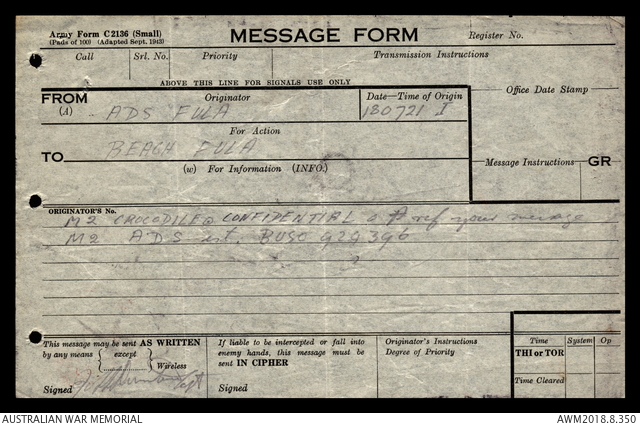 Army Form C2136 (Small)
(Pads of 100) (Adapted Sept. 1943)
MESSAGE FORM
Register No.
Call Srl. No. Priority Transmission Instructions
ABOVE THIS LINE FOR SIGNALS USE ONLY
FROM
(A)
Originator
ADS EULA
Date—Time of Origin
180721 I
Office Date Stamp
For Action
TO
BEACH EULA
(w) For Information (INFO.)
Message Instructions GR
ORIGINATOR'S No.
M2 CROCODILE CONFIDENTIAL ref your message
M2 ADS est. BUSO 929396
This message may be sent AS WRITTEN
by any means { except } Wireless
Signed
If liable to be intercepted or fall into
enemy hands, this message must be
sent IN CIPHER
Signed
Originator's Instructions
Degree of Priority
Time System Op
THI or TOR
Time Cleared
AUSTRALIAN WAR MEMORIAL
AWM2018.8.350